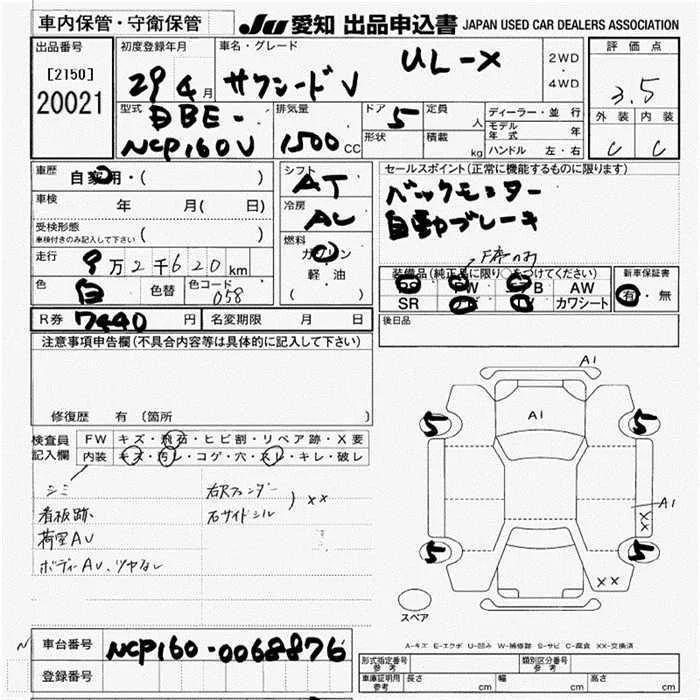 車内保管・守衛保管 JU 愛知 出品申込書 JAPAN USED CAR DEALERS ASSOCIATION
出品番号 初度登録年月 車名・グレード 評価点
[2150] 29年 4月 サクシードV UL-X 2WD・4WD 3.5
20021 型式 DBE- 排気量 ドア 5 定員 人 ディーラー・並行 外装 内装
NCP160V 1500 CC 形状 積載 kg モデル年式 年 C C
ハンドル 左・右
車歴 自家用・( ) シフト AT セールスポイント(正常に機能するものに限ります)
車検 年 月( 日) 冷房 AC バックモニター
受検形態 車検付きのみ記入して下さい ( ) 自動ブレーキ
燃料 ガソリン F席のみ
走行 9万2千620km 軽油 装備品(純正品に限り○をつけてください) 新車保証書
色 白 色替 色コード 058 ( ) PS PW エアB AW 有・無
SR ナビ TV カワシート
R券 7440円 名変期限 月 日 後日品
注意事項申告欄(不具合内容等は具体的に記入して下さい)
修復歴 有 〔箇所 〕
検査員記入欄 FW キズ・飛石・ヒビ割・リペア跡・X要
内装 キズ・汚レ・コゲ・穴・スレ・キレ・破レ
シミ 右Rフェンダー
看板跡 右サイドシル ) XX
荷室AU
ボディーAU、ツヤなし
A1
A1
5 5
A1
XX
5 5
XX
スペア
A-キズ E-エクボ U-凹み W-補修跡 S-サビ C-腐食 XX-交換済
車台番号 NCP160-0068876
登録番号
形式指定番号 参考 類別区分番号 参考
車庫証明用 参考 長さ cm 幅 cm 高さ cm